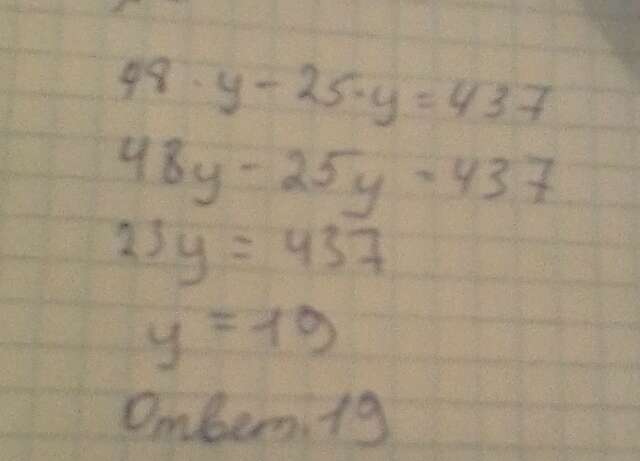 48 · y - 25 · y = 437
48y - 25y = 437
23y = 437
y = 19
Ответ: 19